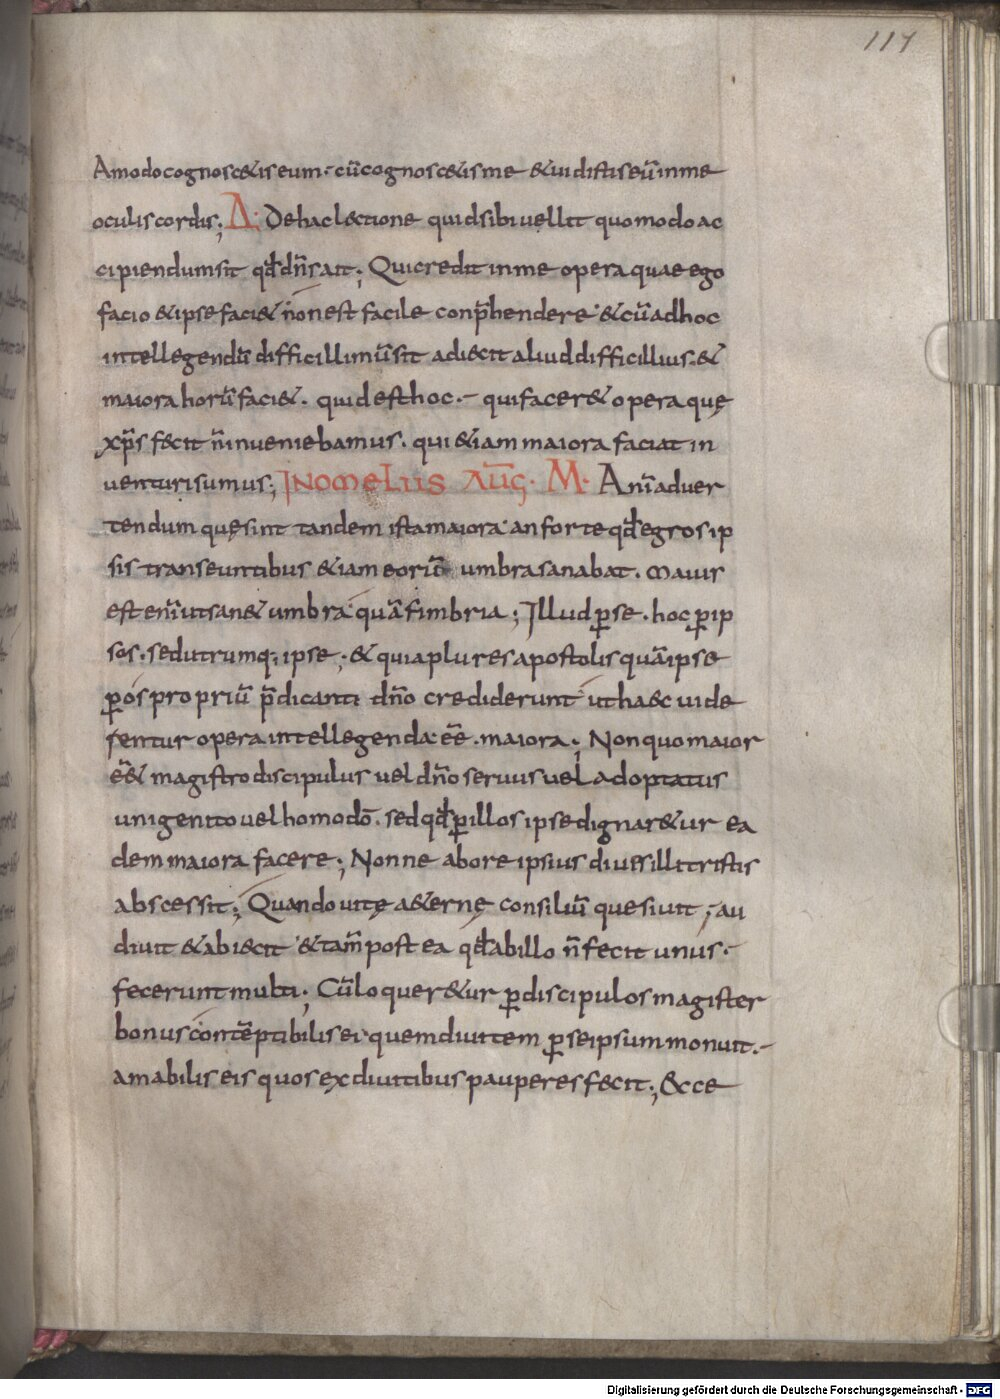 117
Amodo cognoscetis eum · cū cognoscetis me & uidistis eū in me
oculis cordis; Δ· De hac lectione quid sibi uellit quomodo ac
cipiendum sit qđ dn̄s ait; Qui credit in me opera quae ego
facio & ipse faci& n̄on est facile conp̄hendere & cū ad hoc
intellegendū difficillimū sit adiecit aliud difficillius · &
maiora horū faci& · quid est hoc ·- qui facer& opera quę
xp̄s fecit n̄ inueniebamus · qui &iam maiora faciat in
uenturi sumus; IN OMELIIS AUḠ · M · Anim̄aduer
tendum quę sint tandem ista maiora an forte qđ egros ip
sis transeuntibus &iam eorū umbra sanabat · Maius
est enī ut san& umbra quā fimbria; Illud ꝑ se · hoc ꝑ ip
sos · sed utrumq; ipse; & quia plures apostolis quā ipse
ꝑ os propriū p̄dicanti dn̄o crediderunt ut haec uide
rentur opera intellegenda eē · maiora; Non quo maior
eē& magistro discipulus uel dn̄o seruus uel adoptatus
unigenito uel homo dō · sed qđ ꝑ illos ipse dignar&ur ea
dem maiora facere; Nonne ab ore ipsius diues ille tristis
abscessit; Quando uitę a&ernę consiliū quesiuit; au
diuit & abiecit & tam̄ post ea qđ ab illo n̄ fecit unus ·-
fecerunt multi; Cū loquer&ur ꝑ discipulos magister
bonus contēptibilis ei quem diuitem ꝑ se ipsum monuit ·-
amabilis eis quos ex diuitibus pauperes fecit; Ecce
Digitalisierung gefördert durch die Deutsche Forschungsgemeinschaft - DFG